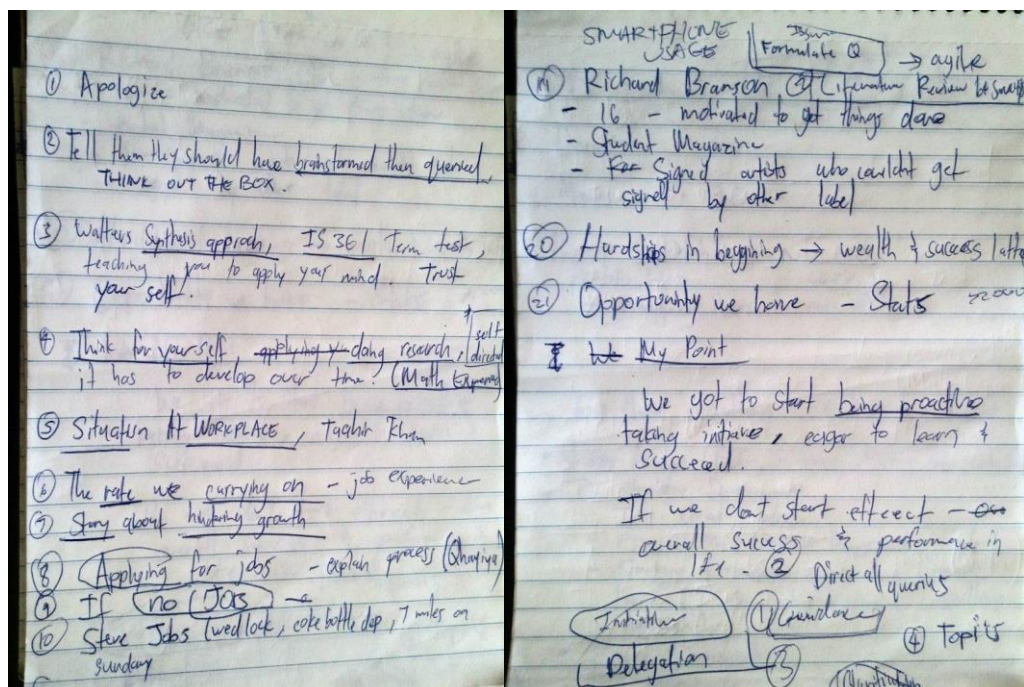 ① Apologize
② Tell them they should have brainstormed then queried,
THINK OUT THE BOX.
③ Walters Synthesis approach, IS 361 Term test,
teaching you to apply your mind. Trust
your self.
④ Think for yourself, doing research, self
it has to develop over time. (Math
⑤ Situation At WORKPLACE, Taahir Khan
⑥ The rate we carrying on - job experience
⑦ Story about hindering growth
⑧ Applying for jobs - explain process
⑨ If no JOBS
⑩ Steve Jobs (wedlock, coke bottle dep, 7 miles on
sunday
SMARTPHONE
USAGE
Formulate Q → agile
Richard Branson, Literature Review
- 16 - motivated to get things done
- Student Magazine
- Signed artists who couldnt get
signed by other label
20 Hardships in beggining → wealth & success
21 Opportunity we have - Stats
My Point
We got to start being proactive
taking initiave, eager to learn &
succeed.
If we dont start effect -
overall success & performance in
life. ② Direct all
queries
① Guidance
④ Topics
Delegation
③